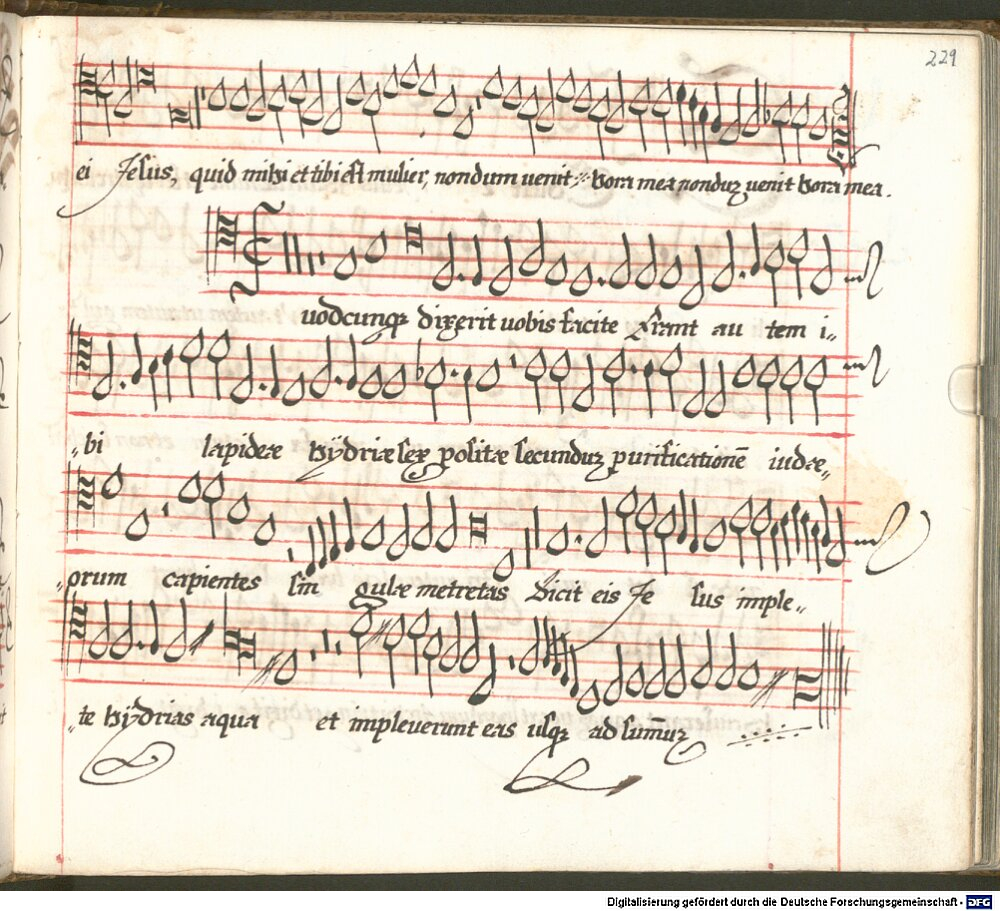 229
ei Jesus, quid mihi et tibi est mulier, nondum uenit :// hora mea nonduz uenit hora mea.
uodcunqz dixerit uobis facite Erant au tem i„
„bi lapideæ hÿdriæ sex positæ secunduz purificationē iudæ„
„orum capientes sin gulæ metretas Dicit eis Je sus imple„
„te hÿdrias aqua et impleuerunt eas usqz ad sum̄uz
Digitalisierung gefördert durch die Deutsche Forschungsgemeinschaft - DFG